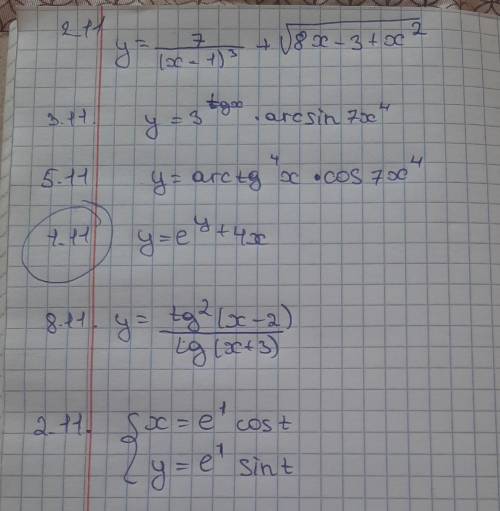 2.11 y = 7/(x-1)³ + √(8x-3+x²)
3.11. y = 3^tgx · arcsin 7x⁴
5.11 y = arctg⁴x · cos 7x⁴
1.11 y = e^y + 4x
8.11. y = tg²(x-2)/lg(x+3)
2.11. { x = e¹ cost
y = e¹ sint